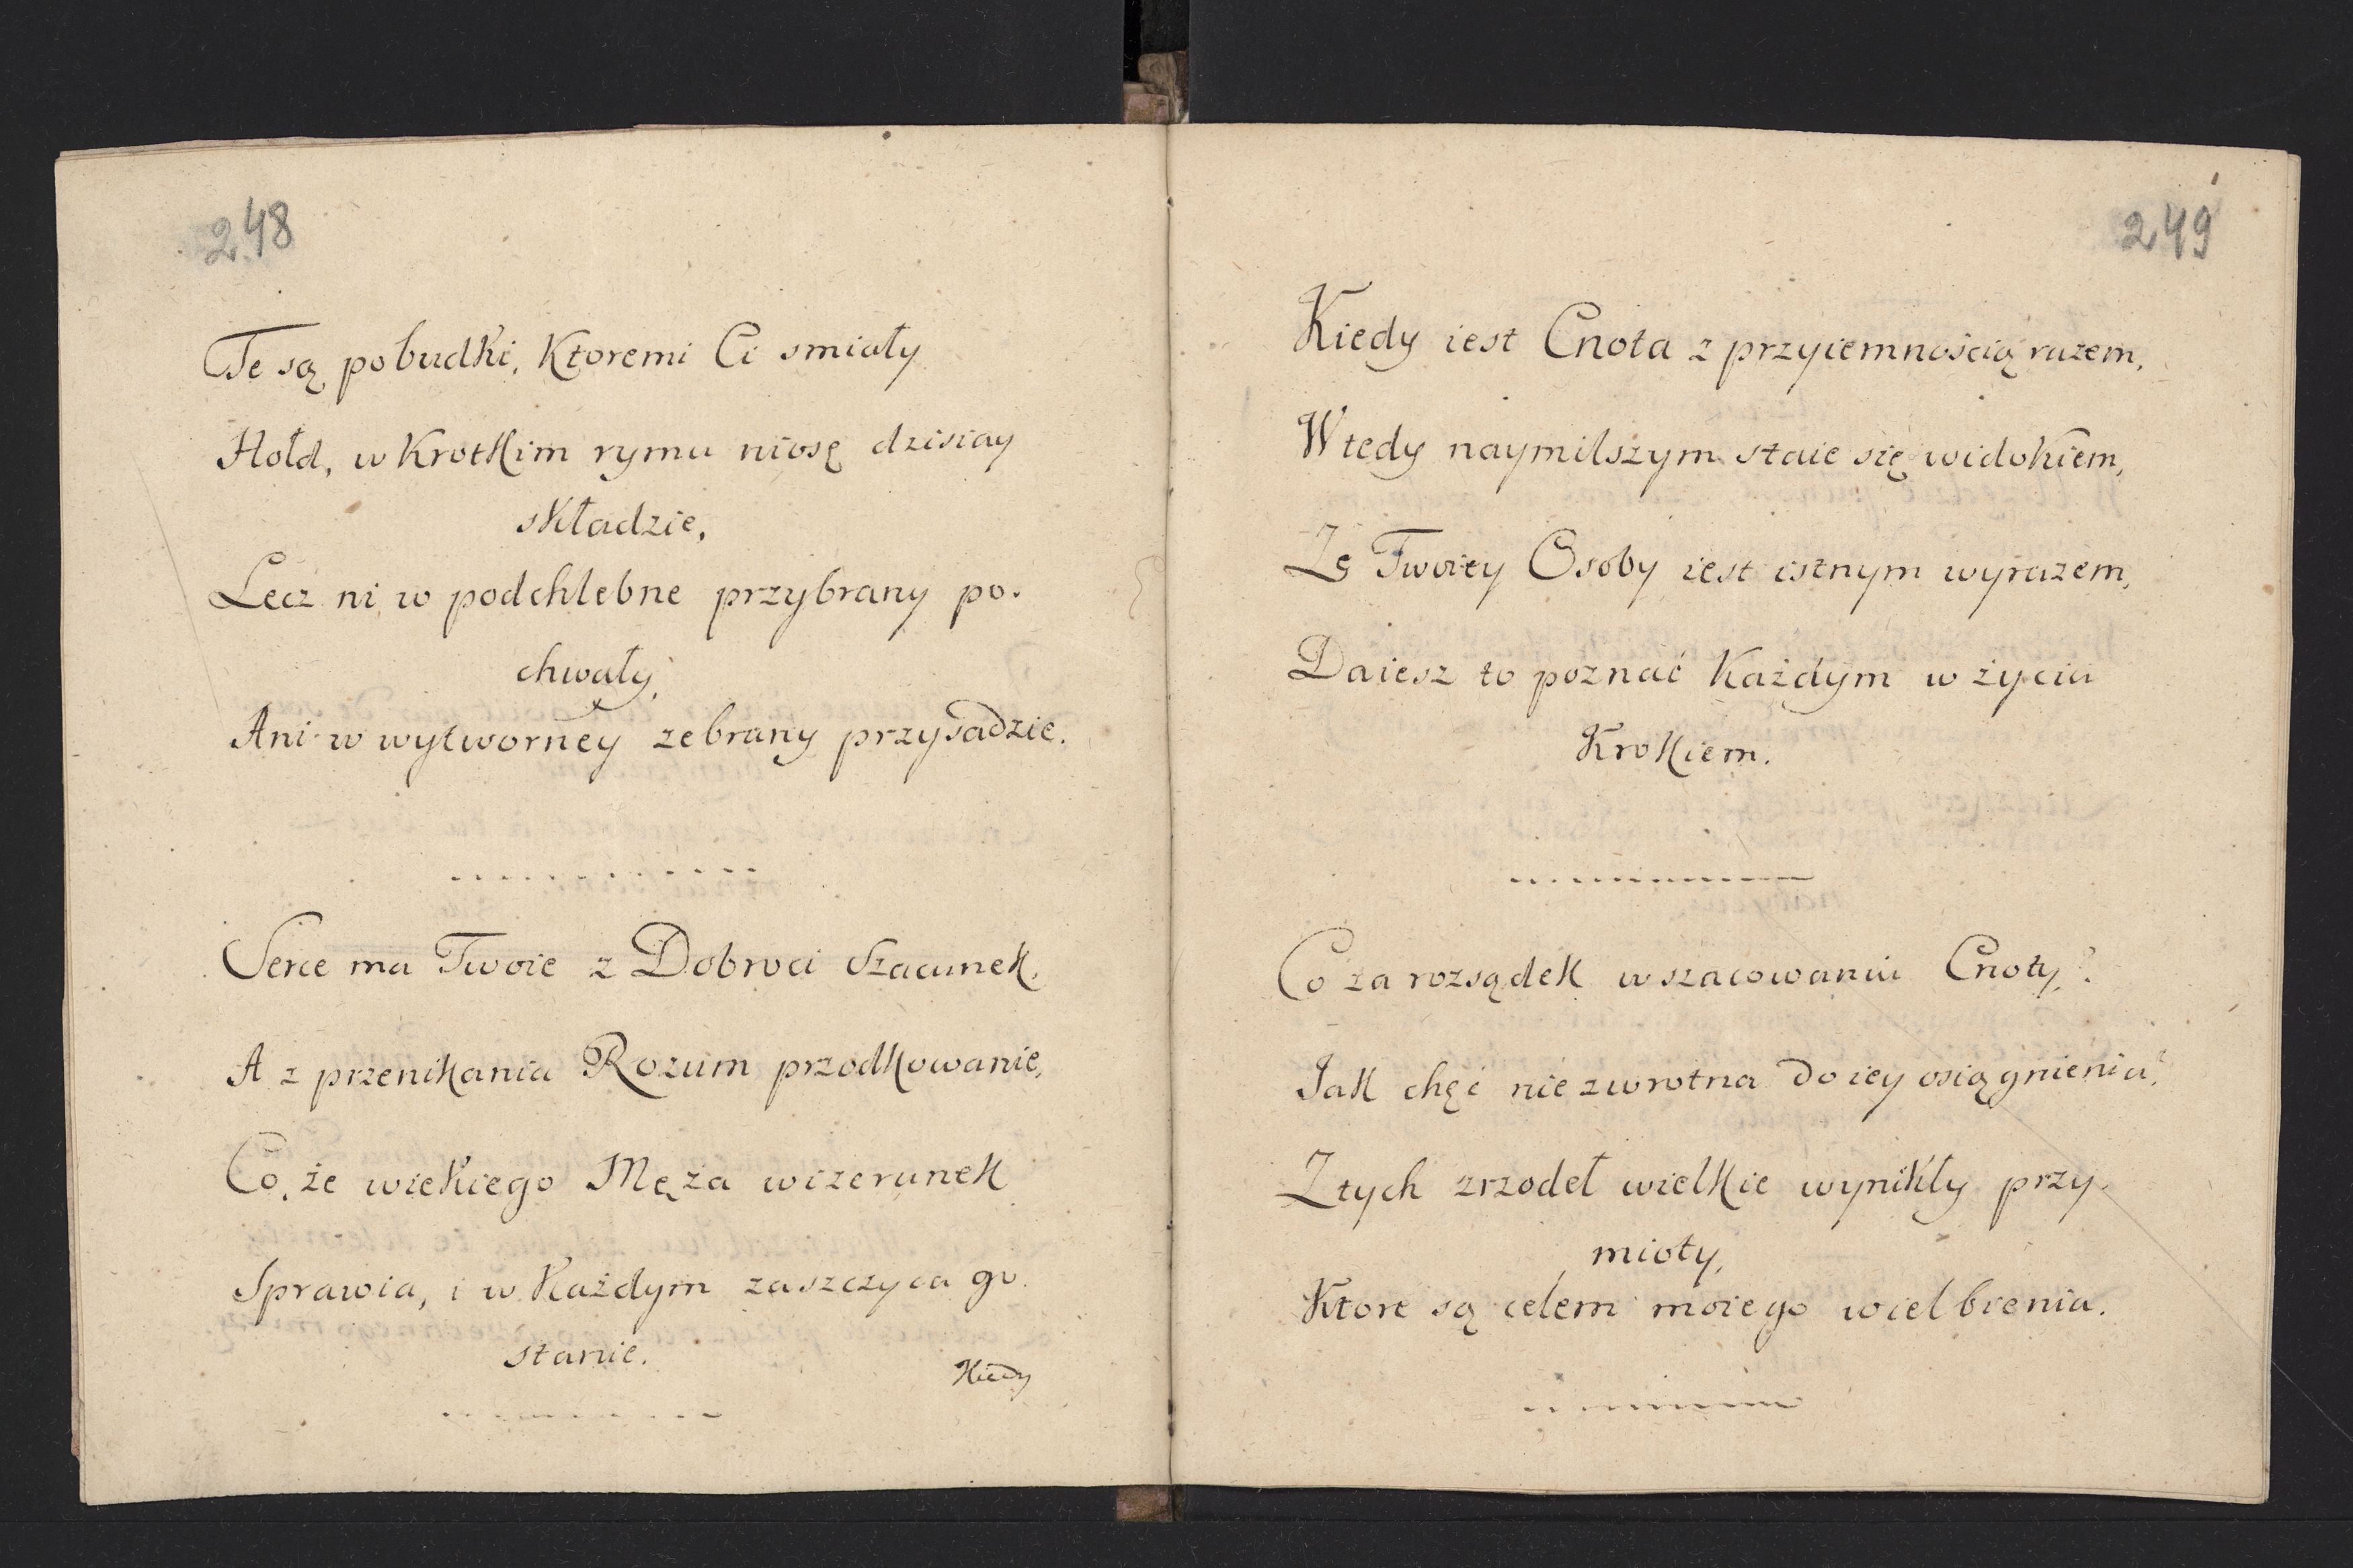 248
Te są pobudki, Ktoremi Ci smiały
Hołd, w Krotkim rymu niosę dzisiay
składzie,
Lecz ni w podchlebne przybrany po-
chwały,
Ani w wytworney zebrany przysadzie.
Serce ma Twoie z Dobroci Szacunek,
A z przenikania Rozum przodkowanie,
Co, że wiekiego Męża wizerunek
Sprawia, i w Każdym zaszczyca go
stanie.
Kiedy
249
Kiedy iest Cnota z przyiemnością razem,
Wtedy naymilszym staie się widokiem,
Ze Twoiey Osoby iest istnym wyrazem,
Daiesz to poznać Każdym w życiu
Krokiem.
Co za rozsądek w szacowaniu Cnoty?
Jak chęć niezwrotna do iey osiągnienia?
Z tych zrzodeł wielkie wynikły przy-
mioty,
Ktore są celem moiego wielbienia.